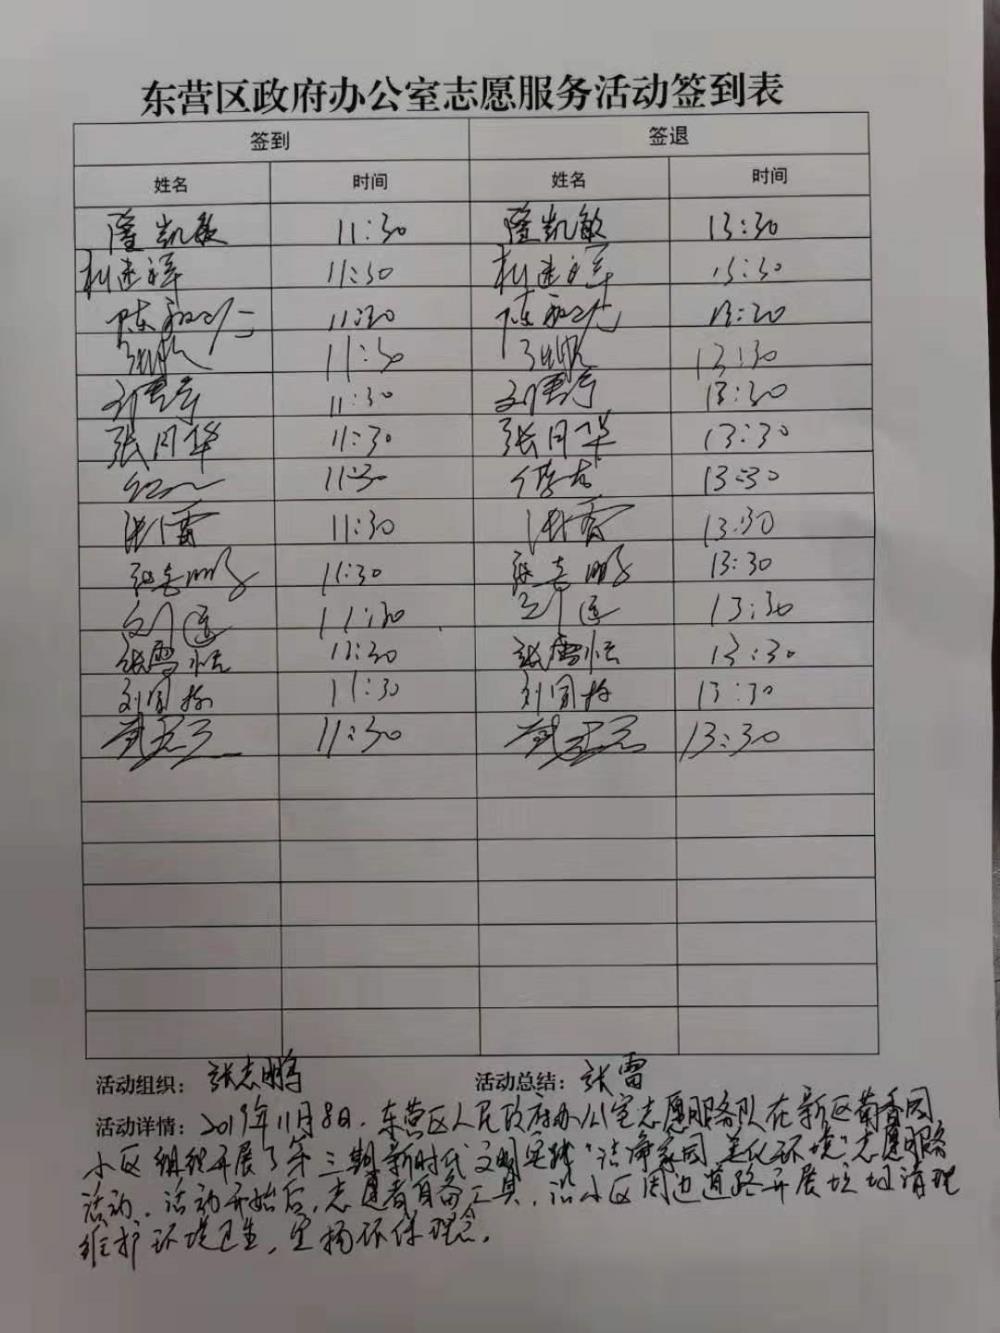 东营区政府办公室志愿服务活动签到表
签到 签退
姓名 时间 姓名 时间
隆凯敏 11:30 隆凯敏 13:30
11:30 13:30
陈 11:30 陈 13:30
11:30 13:30
刘 11:30 刘 13:30
张月华 11:30 张月华 13:30
11:30 13:30
张雷 11:30 张雷 13:30
张志鹏 11:30 张志鹏 13:30
刘 11:30 刘 13:30
张雪 11:30 张雪 13:30
刘国 11:30 刘国 13:30
11:30 13:30
活动组织：张志鹏 活动总结：张雷
活动详情：2019年11月8日，东营区人民政府办公室志愿服务队在新区菊香园
小区组织开展了第三期新时代文明实践“洁净家园 美化环境”志愿服务
活动。活动开始后，志愿者自备工具，沿小区周边道路开展垃圾清理
维护环境卫生，宣扬环保理念。